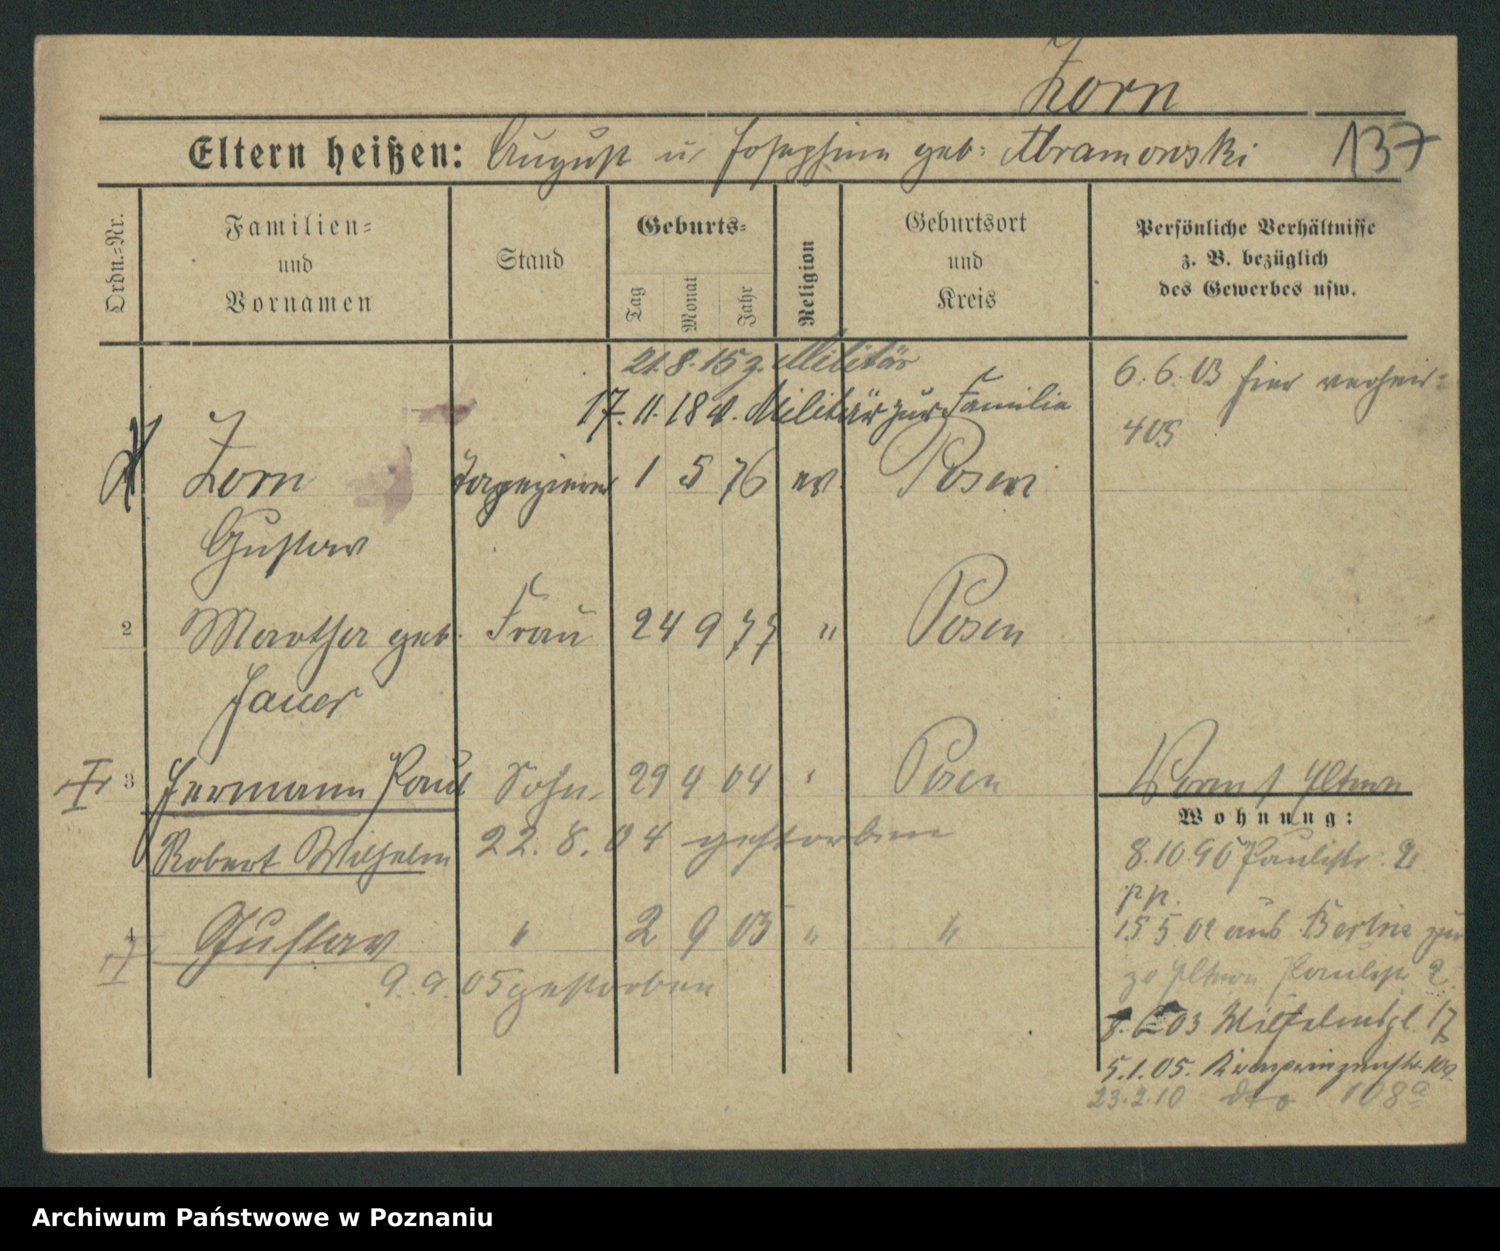 Zorn
Eltern heißen: August u. Josephine geb. Abramowski 137
Ordn.-Nr.
Familien-
und
Vornamen
Stand
Geburts-
Tag
Monat
Jahr
Religion
Geburtsort
und
Kreis
Persönliche Verhältnisse
z. B. bezüglich
des Gewerbes usw.
21.8.15 z. Militär
17.11.18 v. Militär zur Familie
6.6.03 hier verhei-
405
Zorn Tapezierer 1 5 76 ev. Posen
Gustav
2 Martha geb. Frau 24 9 77 " Posen
Jauer
3 Hermann Paul Sohn 29 4 04 " Posen
Robert Wilhelm 22.8.04 gestorben
4 Gustav " 2 9 05 " "
9.9.05 gestorben
Eltern
Wohnung:
8.10.96 Paulistr. 2
pp.
15 5 02 aus Berlin zu
Eltern Paulistr 2.
03 Wilhelmspl. 17
5.1.05. Kronprinzenstr. 10a
23.2.10 dto 108a
Archiwum Państwowe w Poznaniu